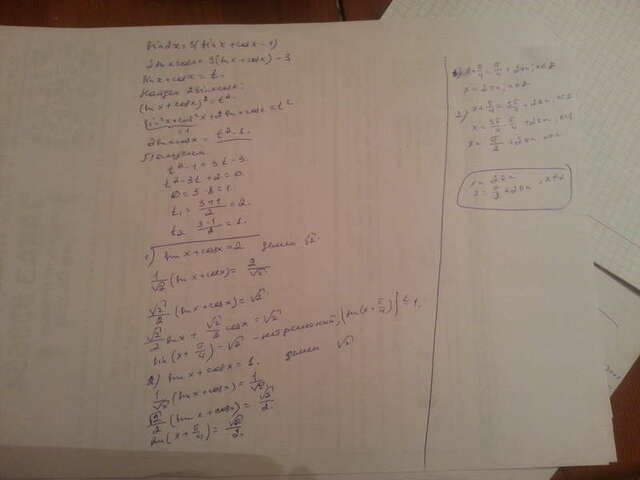 sin2x = 3(sinx + cosx - 1)
2sinx cosx = 3(sinx + cosx) - 3
sinx + cosx = t.
Найдем 2sinxcosx:
(sinx + cosx)² = t²
sin²x + cos²x + 2sinx cosx = t²
=1
2sinxcosx = t² - 1.
Получаем
t² - 1 = 3t - 3.
t² - 3t + 2 = 0
D = 9 - 8 = 1.
t₁ = (3+1)/2 = 2.
t₂ = (3-1)/2 = 1.
1) sinx + cosx = 2 делим √2
1/√2 (sinx + cosx) = 2/√2
√2/2 (sinx + cosx) = √2
√2/2 sinx + √2/2 cosx = √2
sin(x + π/4) = √2 - нет решений, |sin(x + π/4)| ≤ 1
2) sinx + cosx = 1. делим √2
1/√2 (sinx + cosx) = 1/√2
√2/2 (sinx + cosx) = √2/2
sin(x + π/4) = √2/2.
x + π/4 = π/4 + 2πn, n∈Z
x = 2πn, n∈Z
2) x + π/4 = 3π/4 + 2πn, n∈Z
x = 3π/4 - π/4 + 2πn, n∈Z
x = π/2 + 2πn, n∈Z
x = 2πn
x = π/2 + 2πn, n∈Z